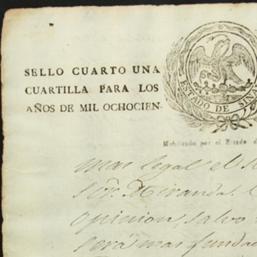 SELLO CUARTO UNA
CUARTILLA PARA LOS
AÑOS DE MIL OCHOCIEN-
ESTADO DE SINA
Habilitado por el Estado d
mas legal el s
Sor. Miranda. l
opinion, salvo
será mas fundad